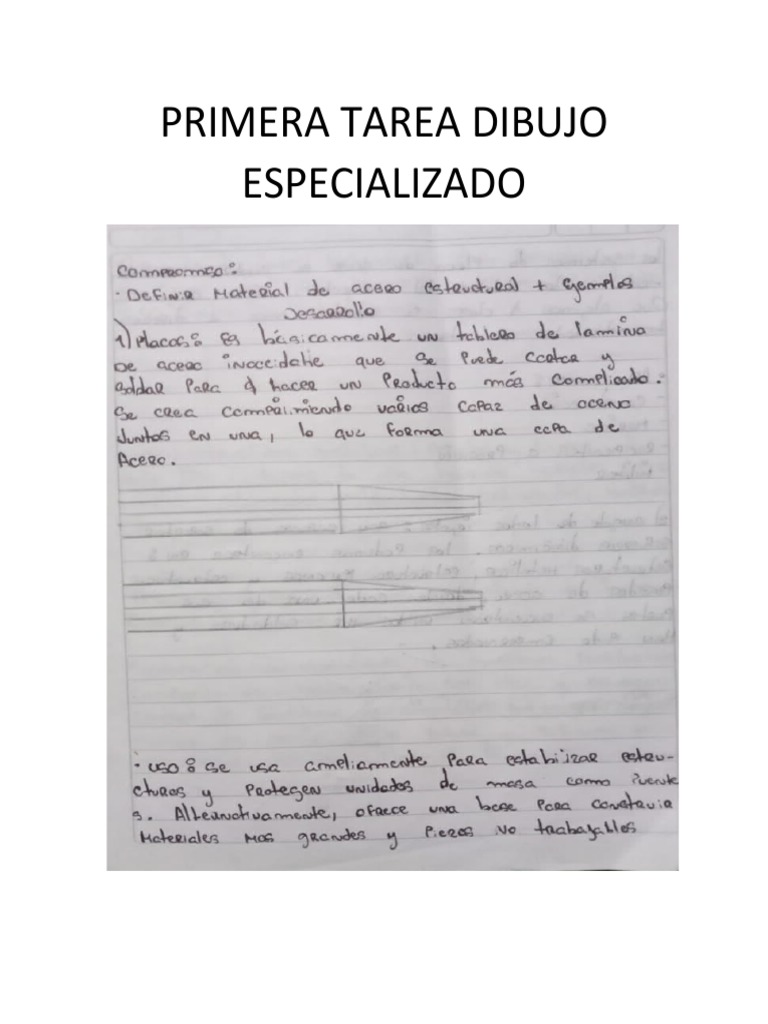 PRIMERA TAREA DIBUJO
ESPECIALIZADO
Compromiso:
· Definir Material de acero estructural + Ejemplos
Desarrollo
1) Placas: Es básicamente un tablero de lamina
De acero inoccidable que se Puede Cortar y
Soldar Para hacer un Producto más Complicado.
Se crea Comprimiendo varios Capaz de acero
Juntos en una, lo que forma una capa de
Acero.
· uso: Se usa ampliamente Para estabilizar estru-
cturas y Protegen unidades de masa como Puente
s. Alternativamente, ofrece una base Para Construir
Materiales mas grandes y Piezas No trabajables